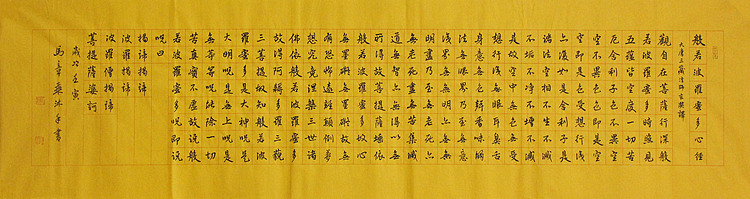 般若波羅蜜多心經
大唐三藏法師玄奘譯
觀自在菩薩行深般
若波羅蜜多時照見
五蘊皆空度一切苦
厄舍利子色不異空
空不異色色即是空
空即是色受想行識
亦復如是舍利子是
諸法空相不生不滅
不垢不淨不增不減
是故空中無色無受
想行識無眼耳鼻舌
身意無色聲香味觸
法無眼界乃至無意
識界無無明亦無無
明盡乃至無老死亦
無老死盡無苦集滅
道無智亦無得以無
所得故菩提薩埵依
般若波羅蜜多故心
無罣礙無罣礙故無
有恐怖遠離顛倒夢
想究竟涅槃三世諸
佛依般若波羅蜜多
故得阿耨多羅三藐
三菩提故知般若波
羅蜜多是大神呪是
大明呪是無上呪是
無等等呪能除一切
苦真實不虛故說般
若波羅蜜多呪即說
呪曰
揭諦揭諦
波羅揭諦
波羅僧揭諦
菩提薩婆訶
歲次壬寅
馬沐手書